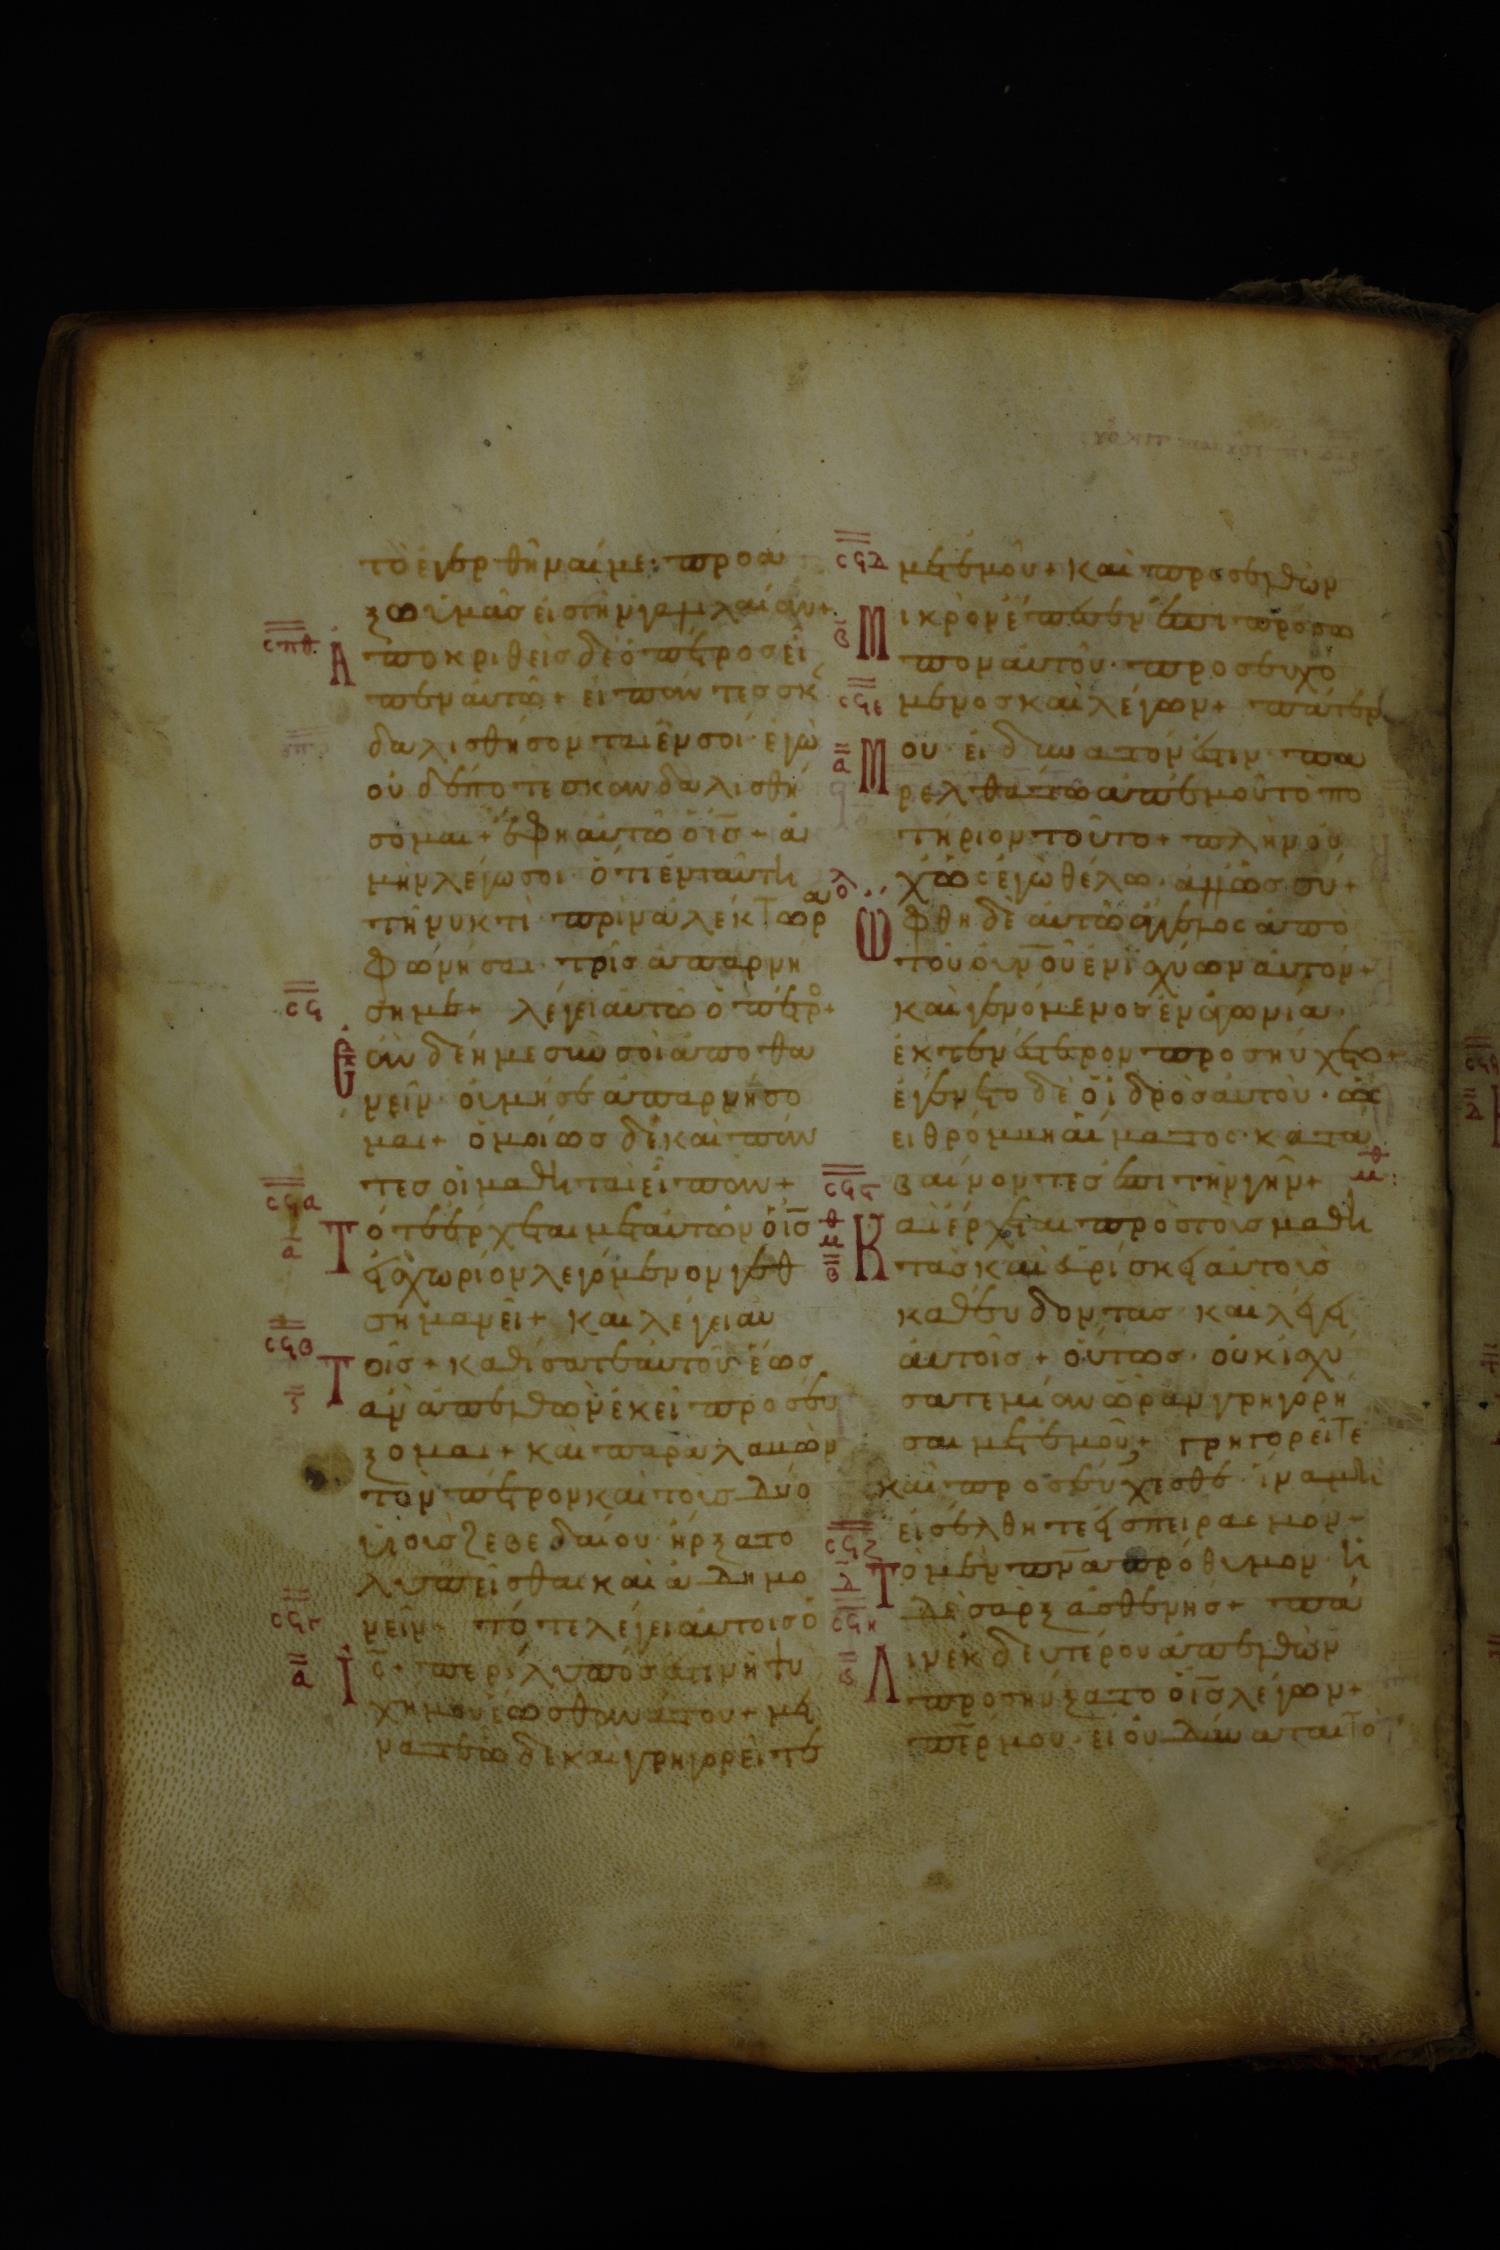 τὸ ἐγερθῆναί με· προά
ξω ὑμᾶσ εἰσ τὴν γαλιλαίαν+
σπθ Ἀποκριθεὶσ δὲ ὁ πέτροσ εἶ
πεν αὐτῶ+ εἰ πάντεσ σκ
δαλισθήσονται ἐν σοί· ἐγὼ
οὐδέποτε σκανδαλισθή
σομαι+ ἔφη αὐτῶ ὁ ἰσ+ ἀ
μὴν λέγω σοι· ὅτι ἐν ταύτη
τῆ νυκτὶ· πρὶν ἀλέκτωρ
φωνῆσαι· τρὶσ ἀπαρνή
σϟ ση με+ λέγει αὐτῶ ὁ πέτρο+
κἂν δέη με σὺν σοὶ ἀποθα
νεῖν· οὐ μή σε ἀπαρνήσο
μαι+ ὁμοίωσ δὲ καὶ πάν
τεσ οἱ μαθηταὶ εἶπαν+
σϟα α Τότε ἔρχεται μετ αὐτῶν ὁ ἰσ
εἰσ χωρίον λεγόμενον γεθ
σημανεῖ+ καὶ λέγει αυ
σϟβ ϛ Τοῖσ+ καθίσατε αὐτοῦ ἕωσ
ἂν ἀπελθὼν ἐκεῖ προσεύ
ξομαι+ καὶ παραλαβὼν
τὸν πέτρον καὶ τοὺσ δύο
υἱοὺσ ζεβεδαίου· ἤρξατο
λυπεῖσθαι καὶ ἀδημο
σϟγ νεῖν+ τότε λέγει αὐτοισ ὁ
α ἰσ+ περίλυπόσ ἐστιν ἡ ψυ
χή μου ἕωσ θανάτου+ μεί
νατε ὧδε καὶ γρηγορεῖτε
σϟδ μετ ἐμοῦ+ καὶ προσελθὼν
β Μικρὸν ἔπεσεν ἐπι πρόσω
πον αὐτοῦ· προσευχό
σϟε μενοσ καὶ λέγων+ πάτερ
α Μου· εἰ δυνατόν ἐστιν· πα
ρελθάτω ἀπ ἐμοῦ τὸ πο
τήριον τοῦτο+ πλὴν οὐ
χ ὡσ ἐγὼ θέλω· ἀλλ ὡσ συ+
Ὤφθη δὲ αὐτῶ ἄγγελος ἀπὸ
τοῦ οὐνοῦ ἐνισχύων αὐτόν+
καὶ γενόμενοσ ἐν ἀγωνία·
ἐκτενέστερον προσηύχετο+
ἐγένετο δὲ ὁ ἱδρὸσ αὐτοῦ· ὡς
εἰ θρόμβοι αἵματος· κατα
σϟϛ βαίνοντεσ ἐπι τὴν γῆν+
β Καὶ ἔρχεται πρὸσ τοὺσ μαθη
τὰσ καὶ εὑρίσκει αὐτοὺσ
καθεύδοντασ· καὶ λέγει
αὐτοῖσ+ οὕτωσ· οὐκ ἰσχύ
σατε μίαν ὥραν γρηγορῆ
σαι μετ ἐμοῦ; γρηγορεῖτε
καὶ προσεύχεσθε· ἵνα μὴ
σϟζ εἰσέλθητε εἰσ πειρασμόν+
δ Τὸ μὲν πνα πρόθυμον· ἡ
σϟη δὲ σὰρξ ἀσθενήσ+ πά
ϛ Λιν ἐκ δευτέρου ἀπελθὼν
προσηύξατο ὁ ἰσ λέγων+
περ μου· εἰ οὐ δύναται τὸ